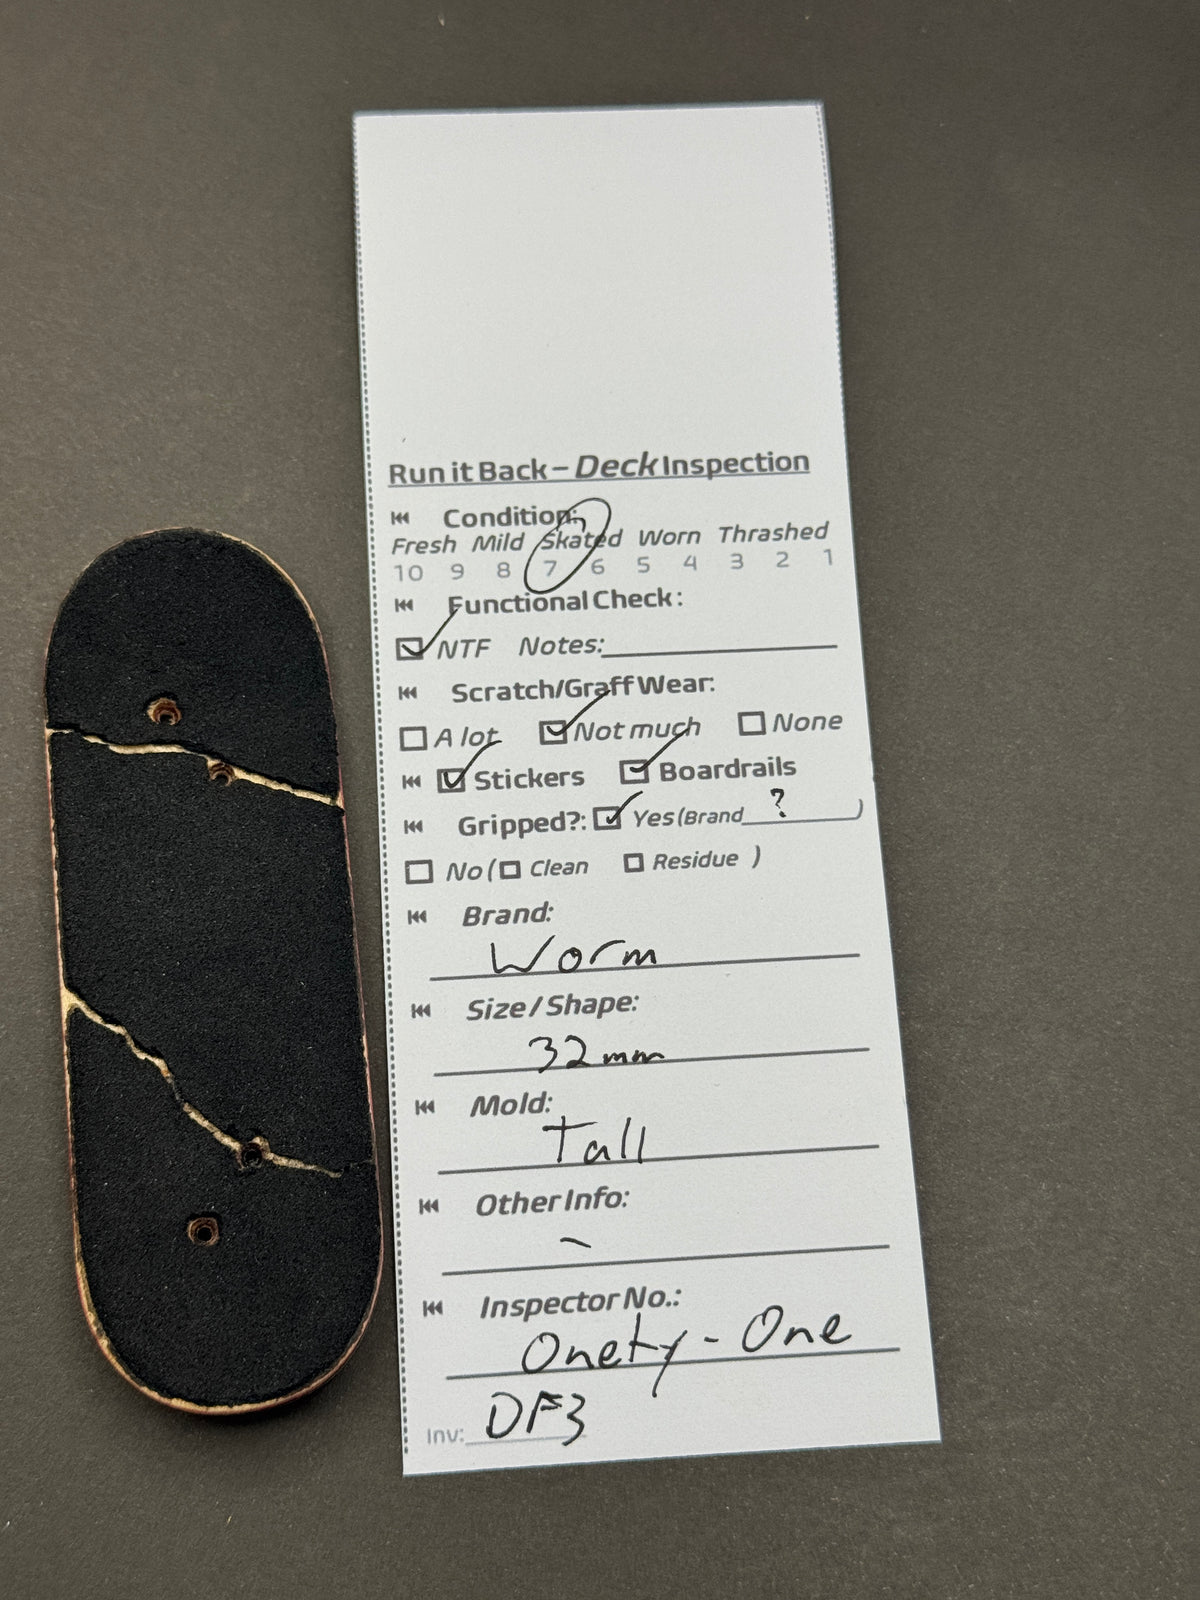 Run it Back – Deck Inspection
Condition:
Fresh Mild Skated Worn Thrashed
10 9 8 7 6 5 4 3 2 1
Functional Check:
NTF Notes:
Scratch/Graff Wear:
A lot Not much None
Stickers Boardrails
Gripped?: Yes (Brand ? )
No ( Clean Residue )
Brand:
Worm
Size / Shape:
32mm
Mold:
Tall
Other Info:
–
Inspector No.:
Onety-One
Inv: DF3